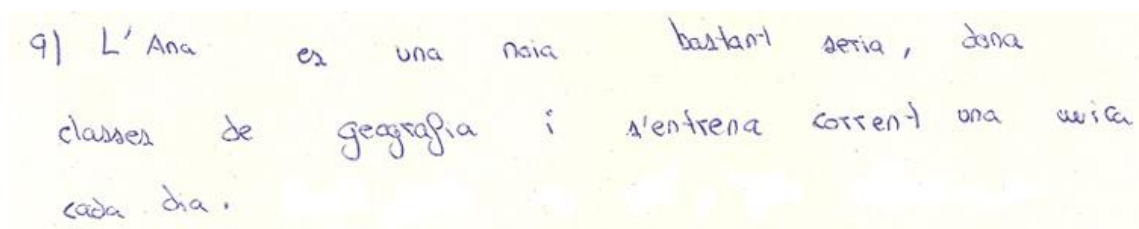 9) L'Ana es una noia bastant seria, dona
classes de geografia i s'entrena corrent una mica
cada dia.